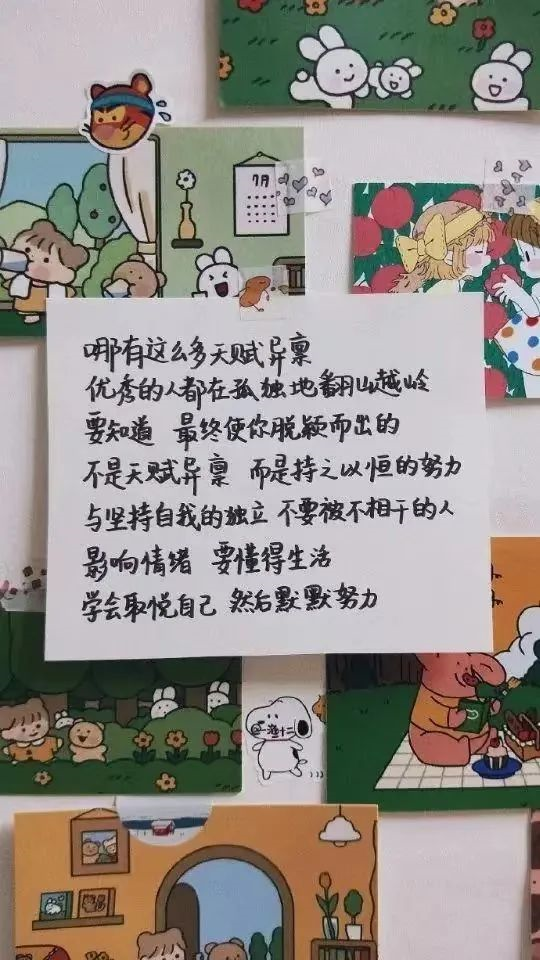 7月
哪有这么多天赋异禀
优秀的人都在孤独地翻山越岭
要知道 最终使你脱颖而出的
不是天赋异禀 而是持之以恒的努力
与坚持自我的独立 不要被不相干的人
影响情绪 要懂得生活
学会取悦自己 然后默默努力